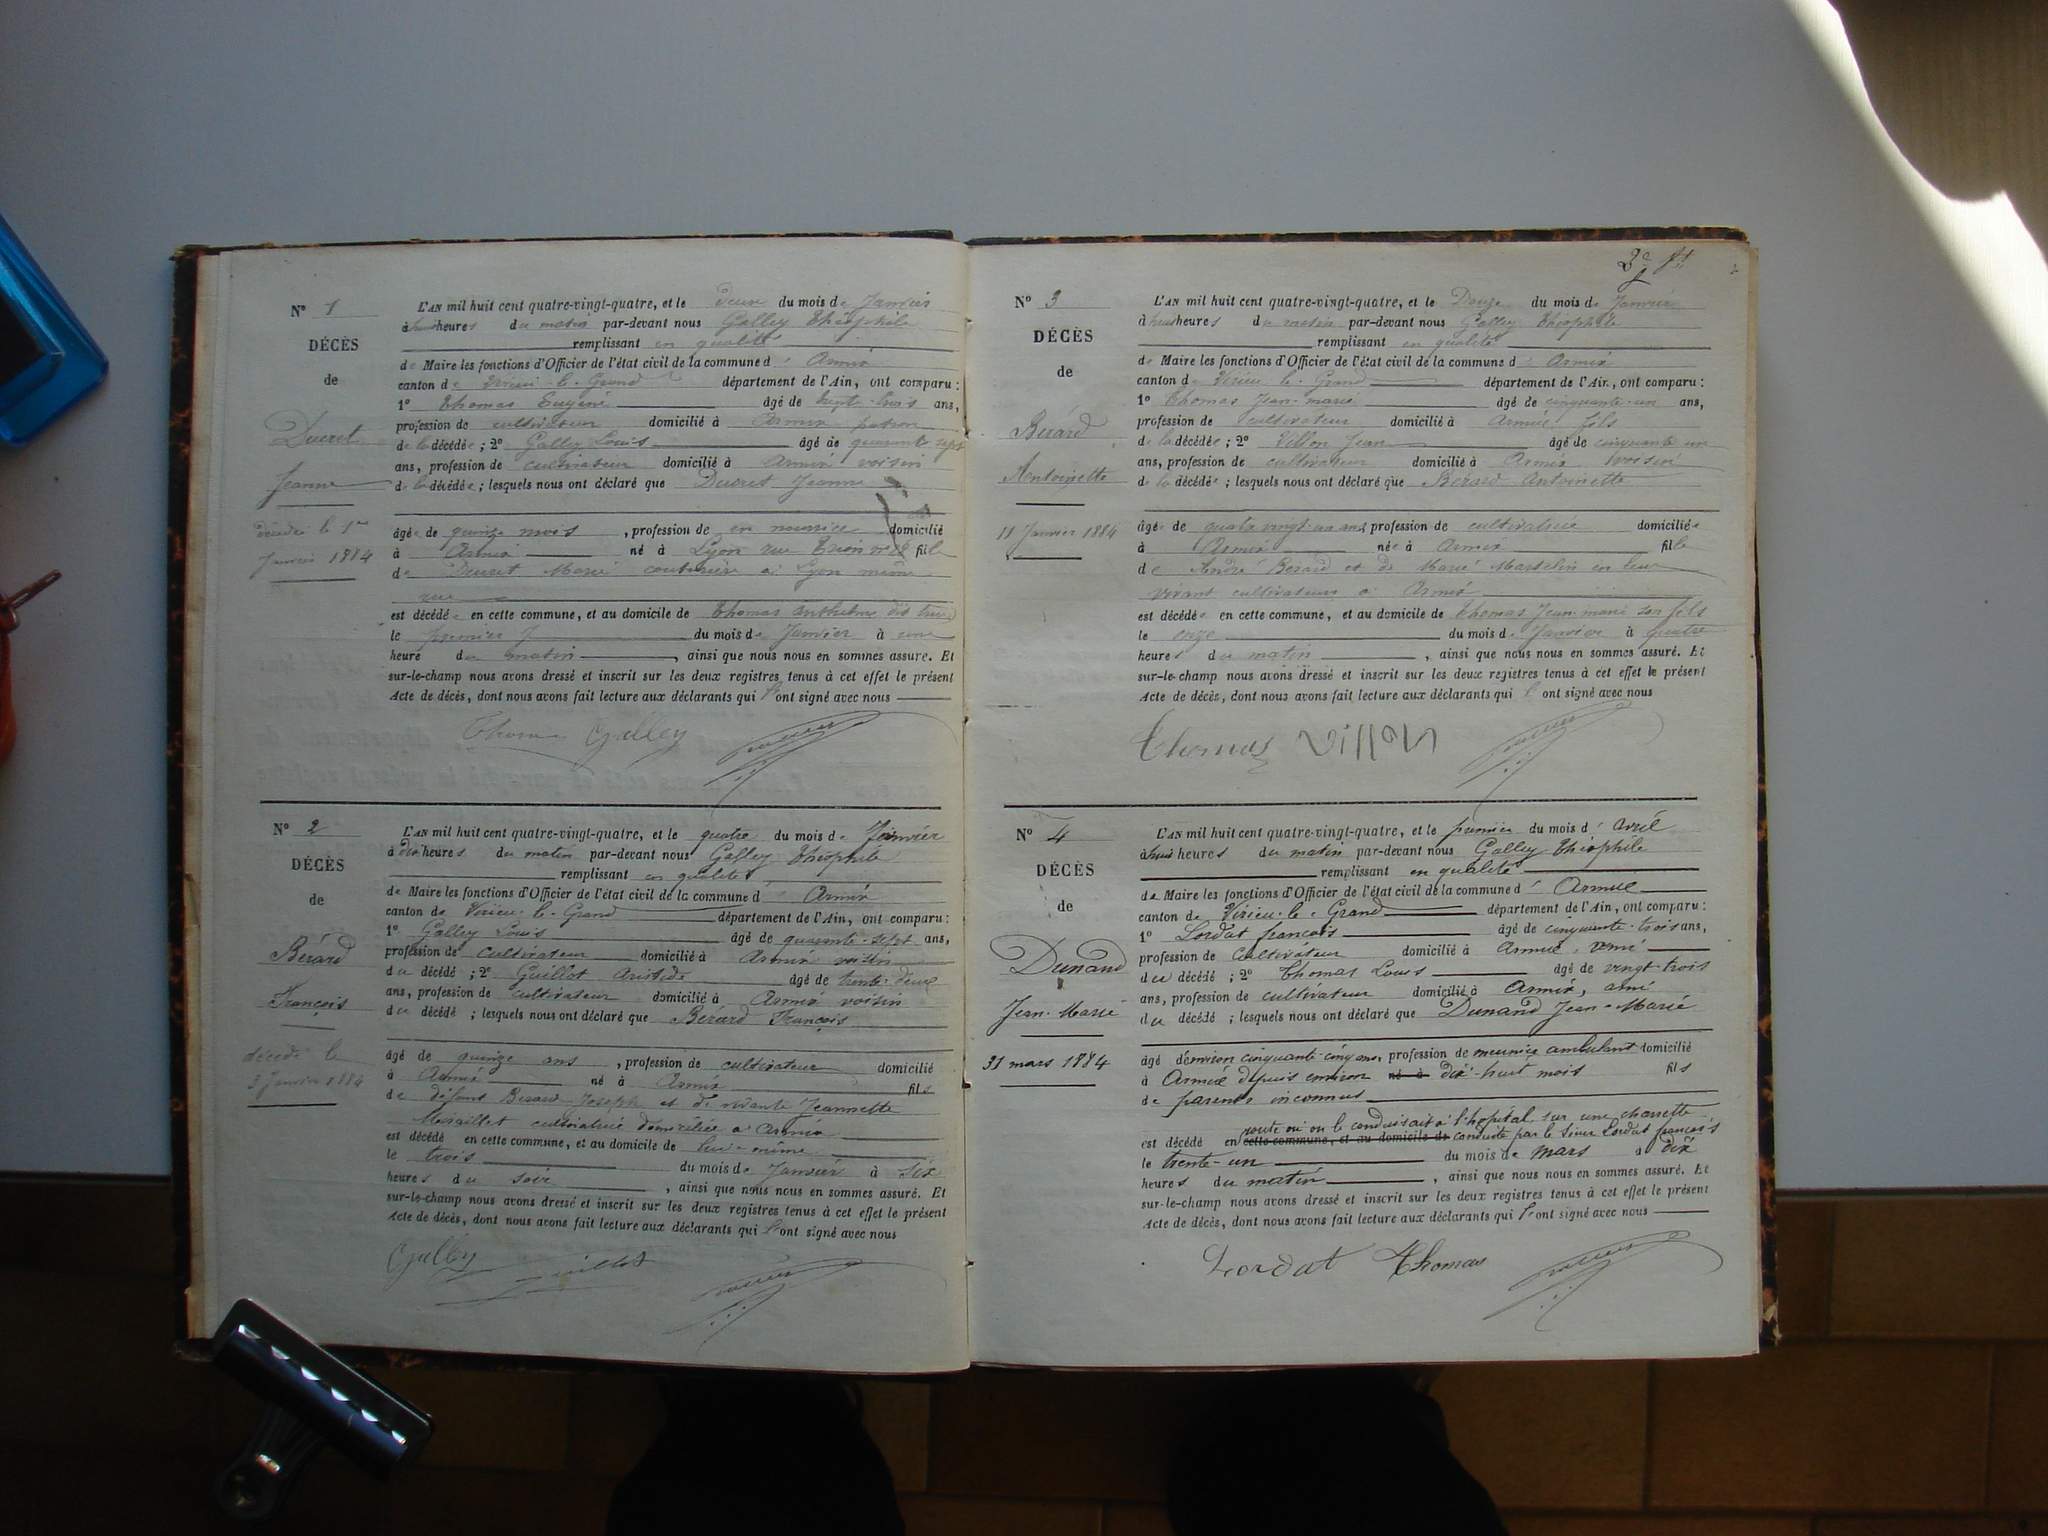 N° 1
DÉCÈS
de
Ducret
Jeanne
décédée le 1er
Janvier 1884
L'AN mil huit cent quatre-vingt-quatre, et le deux du mois de Janvier
à huit heures du matin par-devant nous Galley Théophile
remplissant en qualité
de Maire les fonctions d'Officier de l'état civil de la commune d' Armix
canton de Virieu-le-Grand département de l'Ain, ont comparu :
1° Thomas Eugène âgé de vingt-trois ans,
profession de cultivateur domicilié à Armix patron
de la décédée ; 2° Galley Louis âgé de quarante sept
ans, profession de cultivateur domicilié à Armix voisin
de la décédée ; lesquels nous ont déclaré que Ducret Jeanne
âgée de quinze mois , profession de en nourrice domicilié
à Armix né à Lyon rue Trion n° fille
de Ducret Marie couturière à Lyon même
rue
est décédée en cette commune, et au domicile de Thomas Anthelme dit
le premier du mois de Janvier à une
heure du matin , ainsi que nous nous en sommes assuré. Et
sur-le-champ nous avons dressé et inscrit sur les deux registres tenus à cet effet le présent
Acte de décès, dont nous avons fait lecture aux déclarants qui l'ont signé avec nous
Thomas Galley
N° 2
DÉCÈS
de
Bérard
François
décédé le
3 Janvier 1884
L'AN mil huit cent quatre-vingt-quatre, et le quatre du mois de Janvier
à dix heures du matin par-devant nous Galley Théophile
remplissant en qualité
de Maire les fonctions d'Officier de l'état civil de la commune d' Armix
canton de Virieu-le-Grand département de l'Ain, ont comparu :
1° Galley Louis âgé de quarante-sept ans,
profession de cultivateur domicilié à Armix voisin
du décédé ; 2° Guillot Aristide âgé de trente-deux
ans, profession de cultivateur domicilié à Armix voisin
du décédé ; lesquels nous ont déclaré que Bérard François
âgé de quinze ans , profession de cultivateur domicilié
à Armix né à Armix fils
de défunt Bérard Joseph et de vivante Jeannette
cultivatrice domiciliée à Armix
est décédé en cette commune, et au domicile de lui-même
le trois du mois de Janvier à six
heures du soir , ainsi que nous nous en sommes assuré. Et
sur-le-champ nous avons dressé et inscrit sur les deux registres tenus à cet effet le présent
Acte de décès, dont nous avons fait lecture aux déclarants qui l'ont signé avec nous
Galley Guillot
N° 3
DÉCÈS
de
Bérard
Antoinette
11 Janvier 1884
L'AN mil huit cent quatre-vingt-quatre, et le Douze du mois de Janvier
à huit heures du matin par-devant nous Galley Théophile
remplissant en qualité
de Maire les fonctions d'Officier de l'état civil de la commune d' Armix
canton de Virieu-le-Grand département de l'Ain, ont comparu :
1° Thomas Jean-marie âgé de cinquante-un ans,
profession de cultivateur domicilié à Armix fils
de la décédée ; 2° Villon Jean âgé de cinquante un
ans, profession de cultivateur domicilié à Armix voisin
de la décédée ; lesquels nous ont déclaré que Bérard Antoinette
âgée de quatre vingt-un ans, profession de cultivatrice domiciliée
à Armix née à Armix fille
de André Bérard et de Marie Marselin en leur
vivant cultivateurs à Armix
est décédée en cette commune, et au domicile de Thomas Jean-marie son fils
le onze du mois de Janvier à quatre
heures du matin , ainsi que nous nous en sommes assuré. Et
sur-le-champ nous avons dressé et inscrit sur les deux registres tenus à cet effet le présent
Acte de décès, dont nous avons fait lecture aux déclarants qui l'ont signé avec nous
Thomas Villon
N° 4
DÉCÈS
de
Dunand
Jean-Marie
31 mars 1884
L'AN mil huit cent quatre-vingt-quatre, et le premier du mois d' Avril
à huit heures du matin par-devant nous Galley Théophile
remplissant en qualité
de Maire les fonctions d'Officier de l'état civil de la commune d' Armix
canton de Virieu-le-Grand département de l'Ain, ont comparu :
1° Lordat françois âgé de cinquante-trois ans,
profession de Cultivateur domicilié à Armix, ami
du décédé ; 2° Thomas Louis âgé de vingt-trois
ans, profession de cultivateur domicilié à Armix, ami
du décédé ; lesquels nous ont déclaré que Dunand Jean-Marie
âgé d'environ cinquante-cinq ans, profession de meunier ambulant domicilié
à Armix depuis environ né à dix-huit mois fils
de parents inconnus
route où on le conduisait à l'hôpital sur une charrette
est décédé en cette commune, et au domicile de conduite par le sieur Lordat françois
le trente-un du mois de mars à dix
heures du matin , ainsi que nous nous en sommes assuré. Et
sur-le-champ nous avons dressé et inscrit sur les deux registres tenus à cet effet le présent
Acte de décès, dont nous avons fait lecture aux déclarants qui l'ont signé avec nous
Lordat Thomas